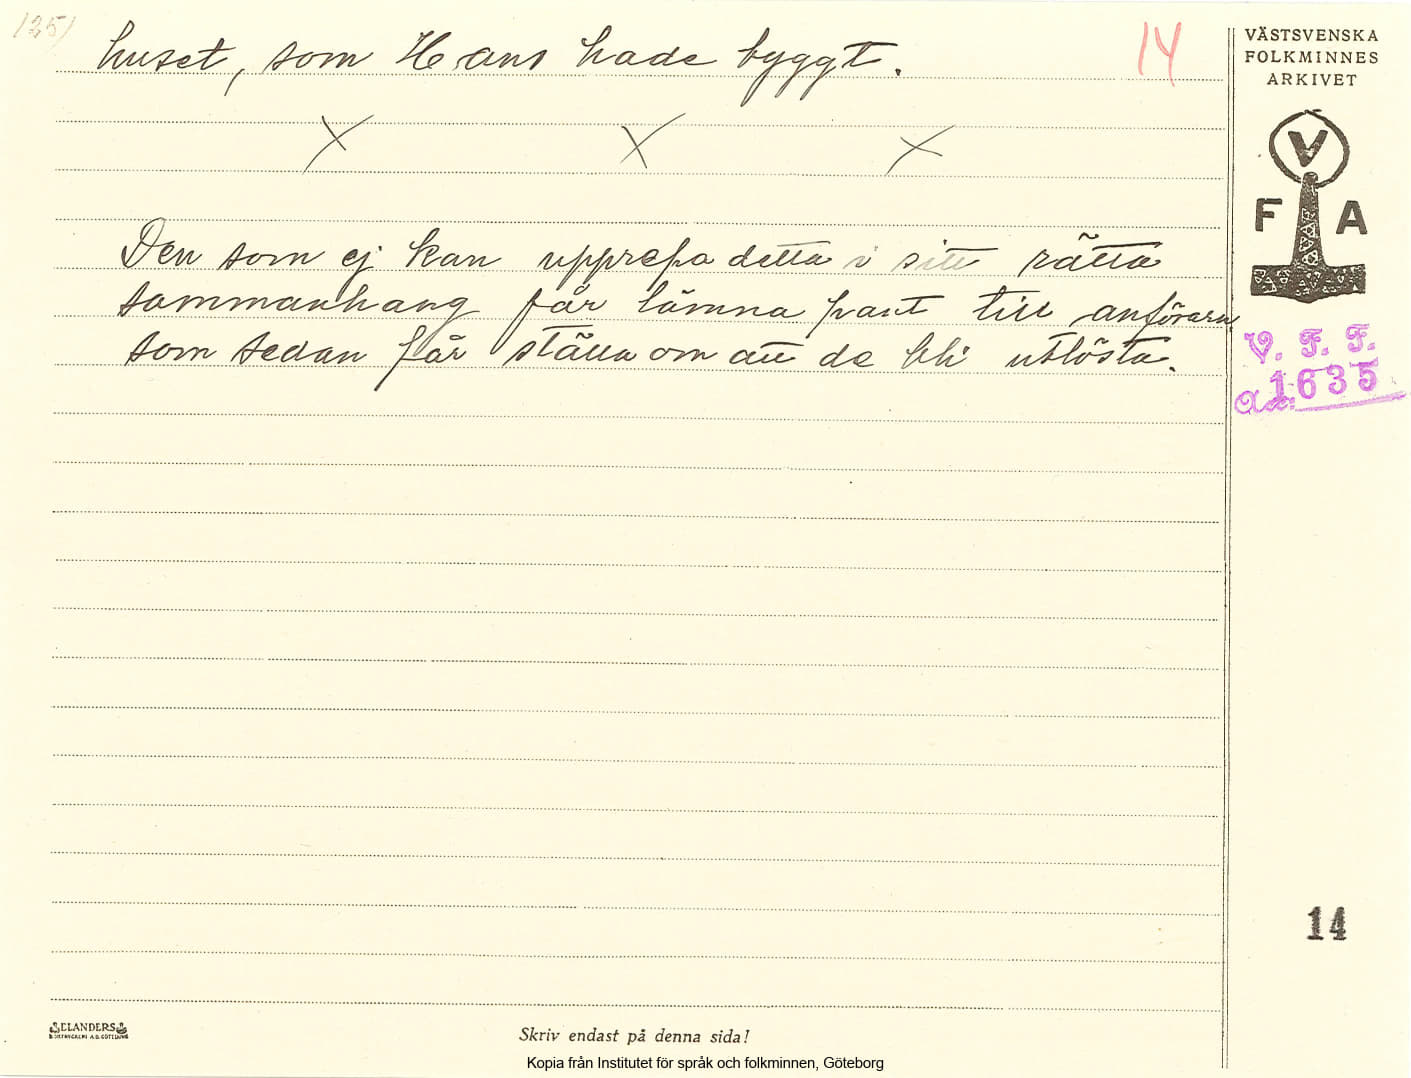 125)
huset, som Hans hade byggt.
14
VÄSTSVENSKA
FOLKMINNES
ARKIVET
V
F A
X X X
Den som ej kan upprepa detta i sitt rätta
sammanhang får lämna pant till anföraren
som sedan får ställa om att de bli utlösta.
V. F. F.
1635
14
ELANDERS
Skriv endast på denna sida!
Kopia från Institutet för språk och folkminnen, Göteborg